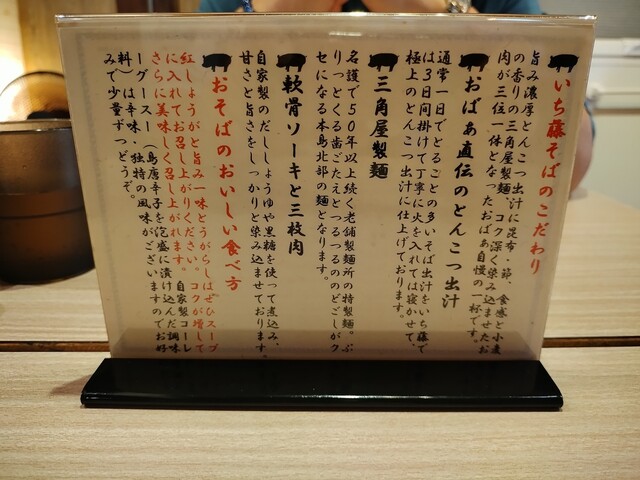 いち藤そばのこだわり
旨み濃厚とんこつ出汁に昆布・節、食感と小麦
の香りの三角屋製麺、コク深く染み込ませたお
肉が三位一体となったおばぁ自慢の一杯です。
おばぁ直伝のとんこつ出汁
通常一日でとることの多いそば出汁をいち藤で
は３日間掛けて丁寧に火を入れては寝かせて、
極上のとんこつ出汁に仕上げております。
三角屋製麺
名護で５０年以上続く老舗製麺所の特製麺。ぷ
りっとくる歯ごたえとつるつるののどごしがク
セになる本島北部の麺となります。
軟骨ソーキと三枚肉
自家製のだししょうゆや黒糖を使って煮込み、
甘さと旨さをしっかりと染み込ませております。
おそばのおいしい食べ方
紅しょうがと旨み一味とうがらしはぜひスープ
に入れてお召し上がりください。コクが増して
さらに美味しく召し上がれます。自家製コーレ
ーグースー（島唐辛子を泡盛に漬け込んだ調味
料）は辛味・独特の風味がございますのでお好
みで少量ずつどうぞ。